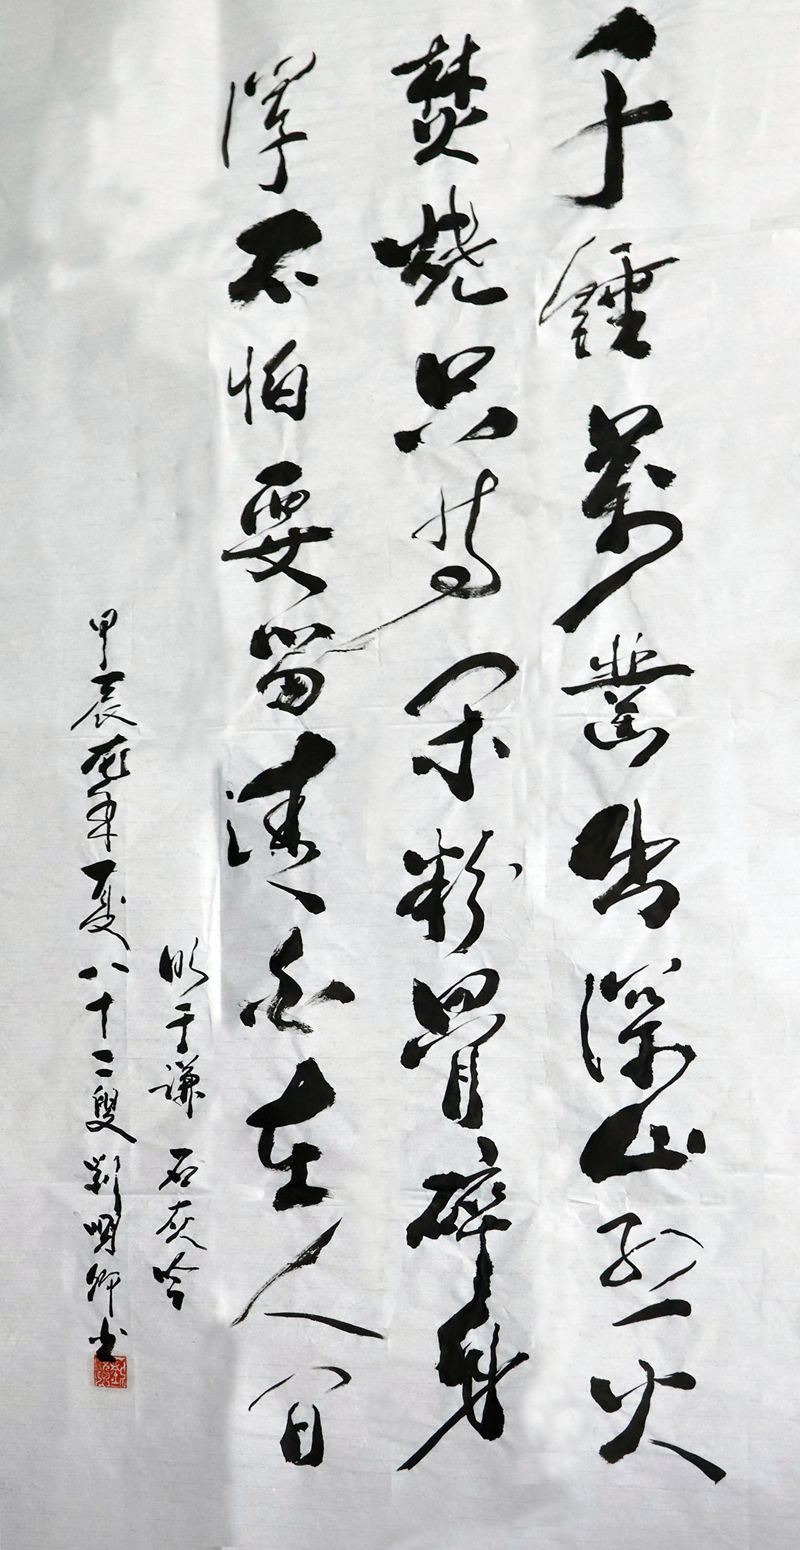 千锤萬凿出深山烈火
焚烧只等闲粉骨碎身
浑不怕要留清白在人间
明于谦 石灰吟
甲辰龙年夏八十二叟 刘明卿书